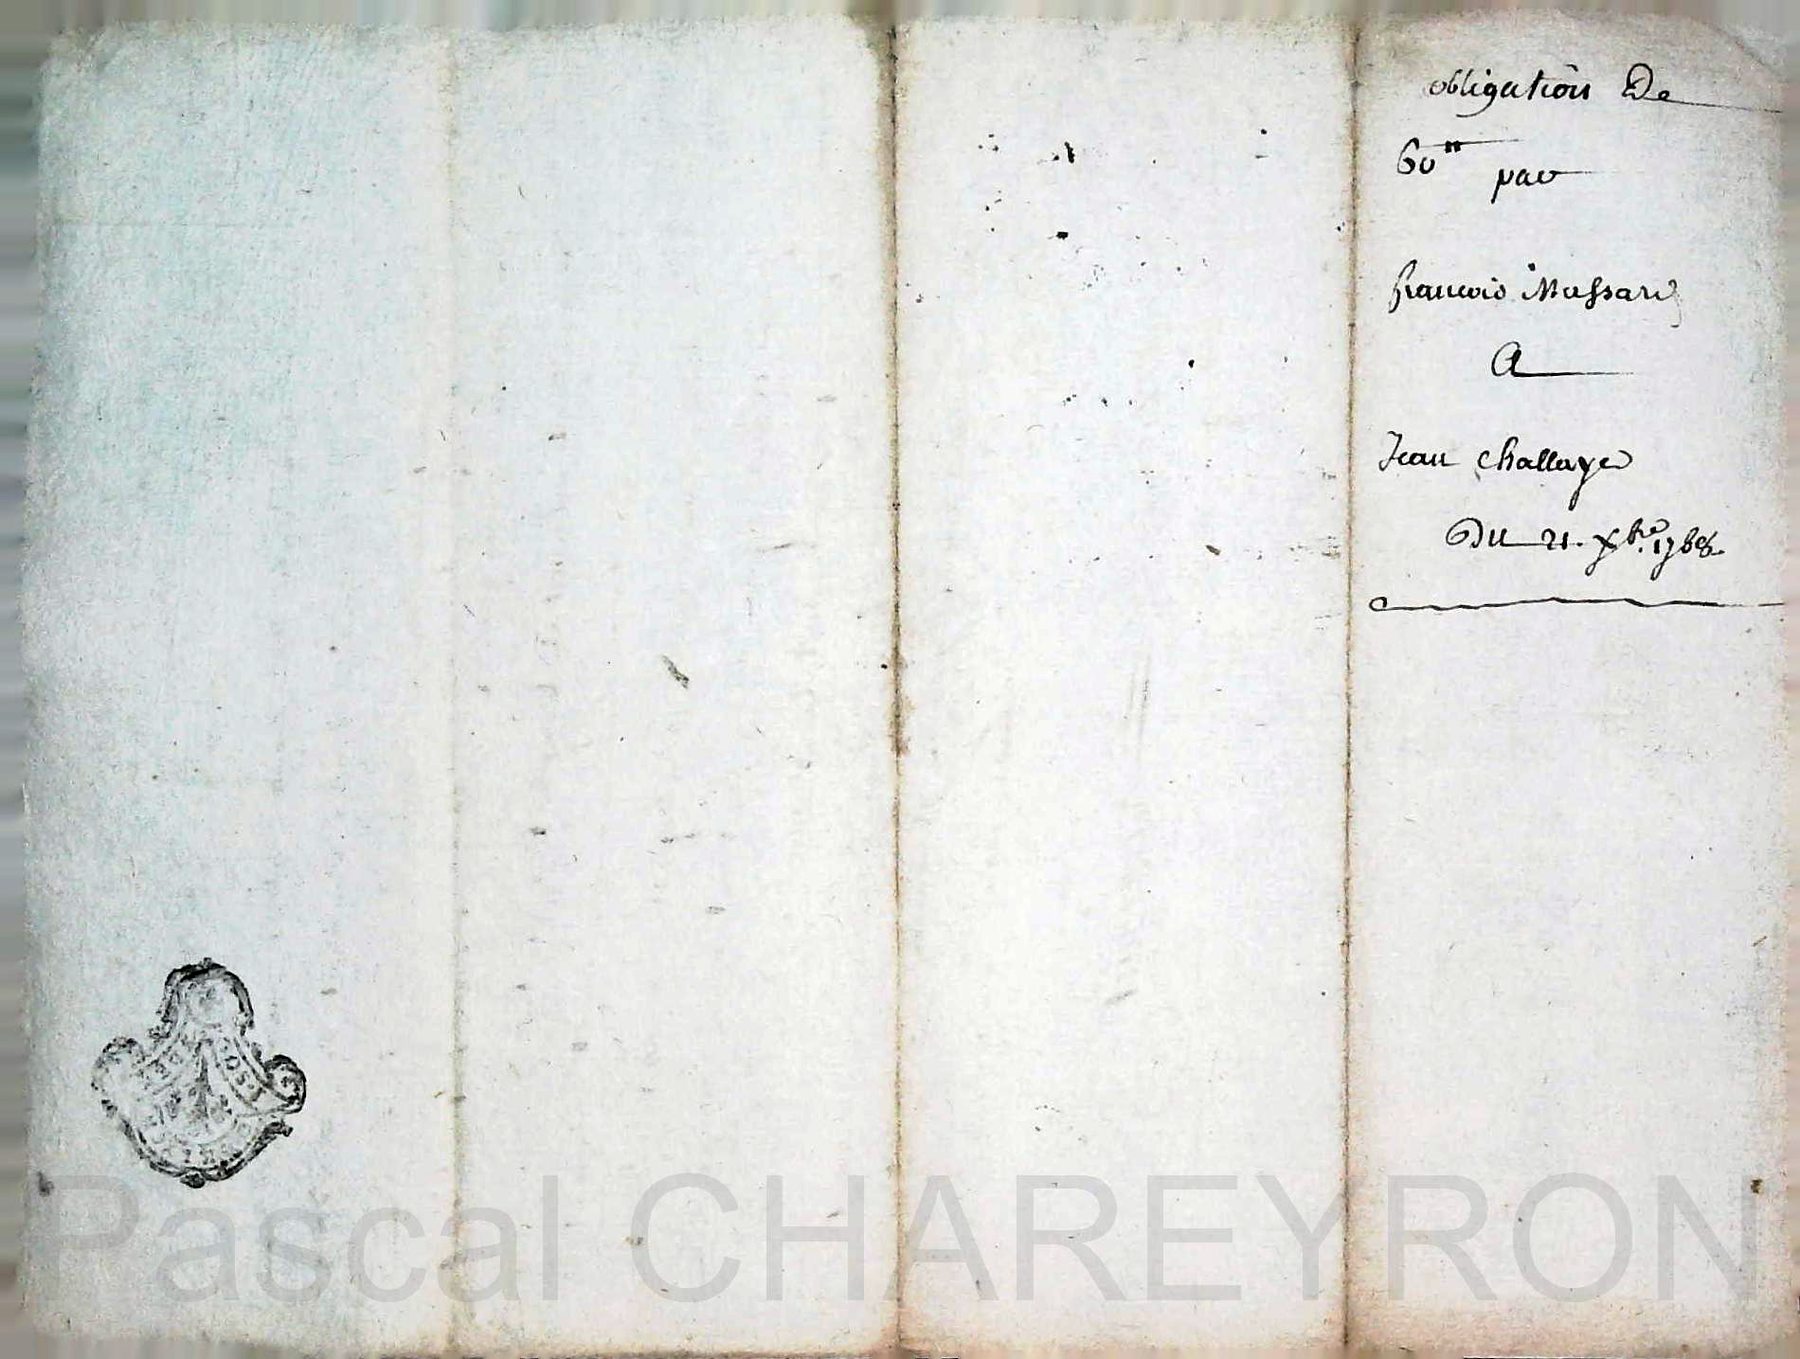 obligation De
60 ₶ par
francois Massard
A
Jean challaye
Du 21. xbre. 1768.
Pascal CHAREYRON